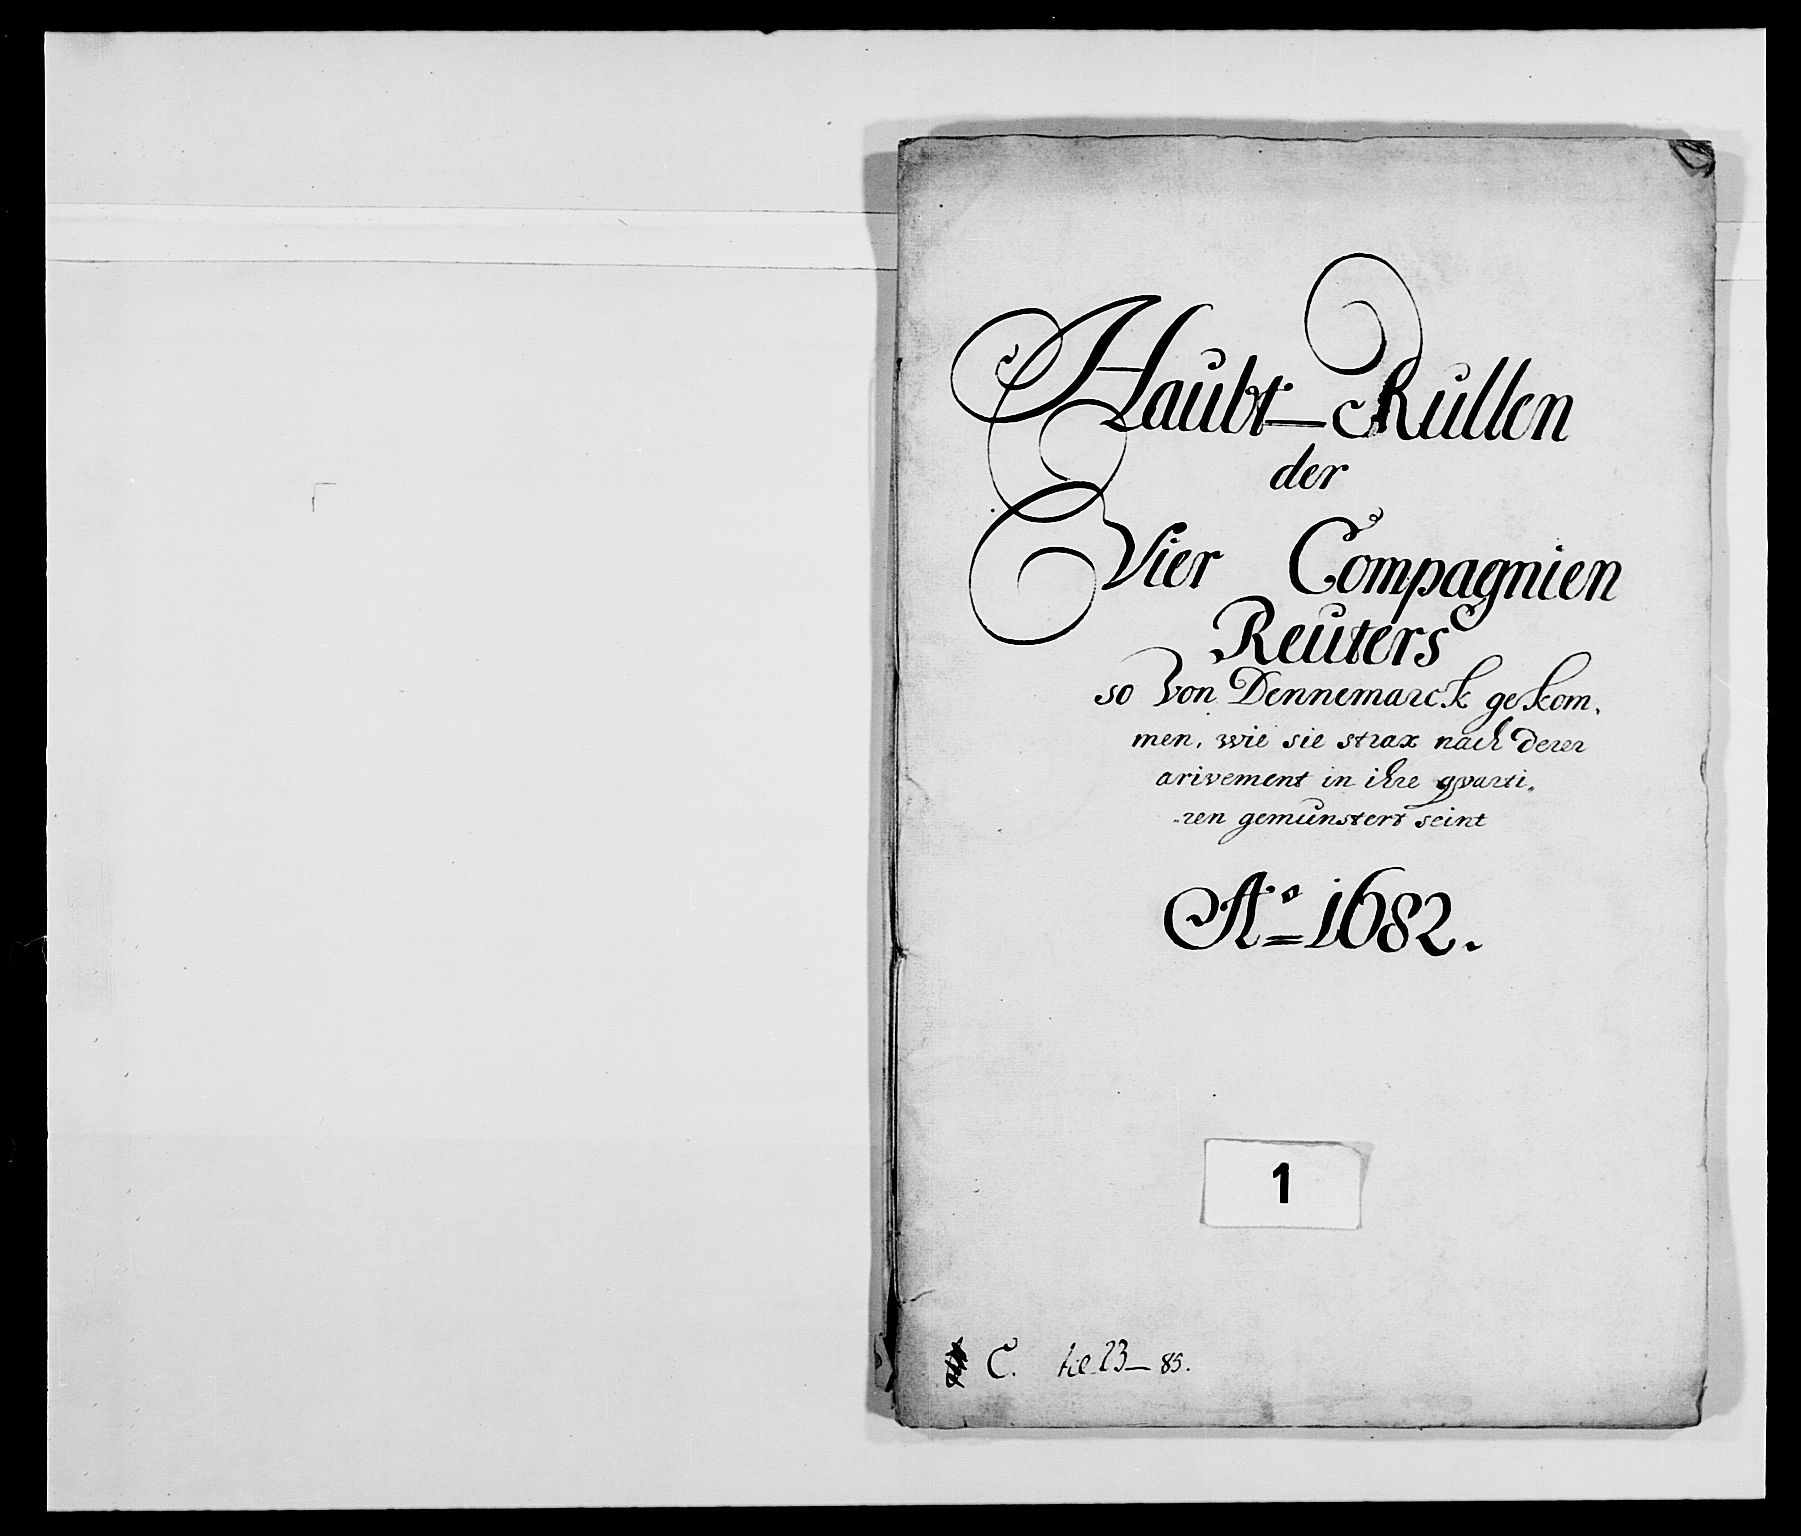 Haubt-Rullen
der
Vier Compagnien
Reuters
so von Dennemarck gekom,
men, wie sie strax nach derer
arivement in ihre qvarti,
ren gemunstert seint
Aº 1682.
1
C. til 23 - 85.